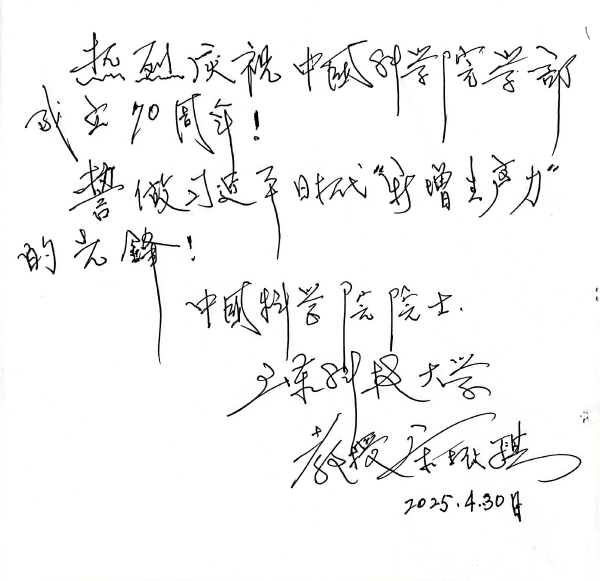 热烈庆祝中國科学院学部
成立70周年!
誓做习近平时代“新增生产力”
的先鋒!
中國科学院院士.
山东科技大学
教授宋振骐
2025.4.30日